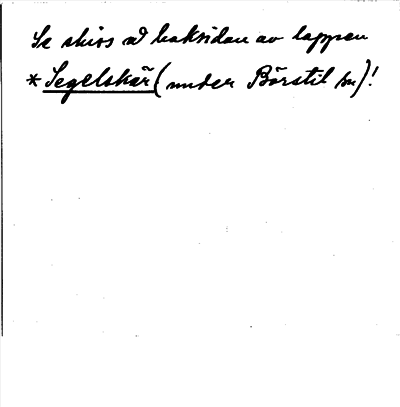 Se skiss å baksidan av lappen
* Segelskär (under Börstil sn)!